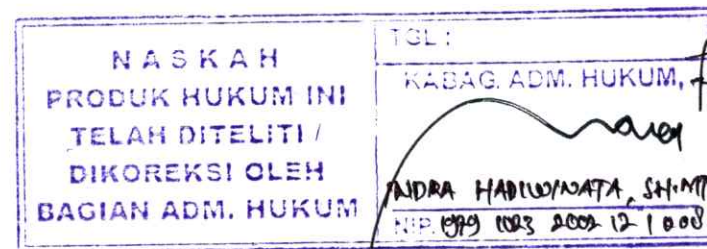 NASKAH
PRODUK HUKUM INI
TELAH DITELITI /
DIKOREKSI OLEH
BAGIAN ADM. HUKUM
TGL :
KABAG. ADM. HUKUM,
INDRA HADIWINATA, SH.MT
NIP. 1979 1023 2002 12 1 008